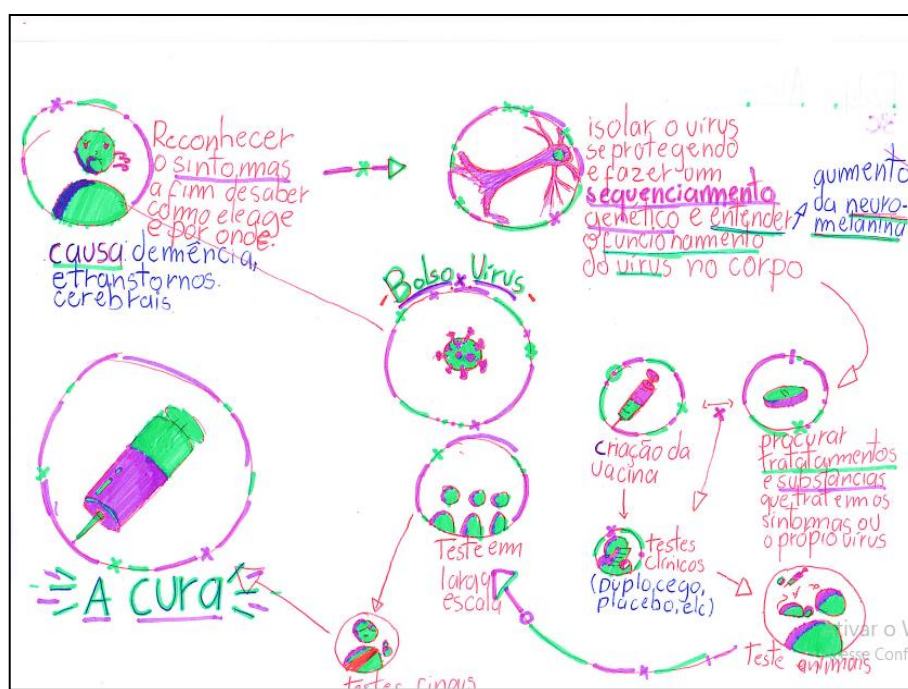 Reconhecer
o sintomas
a fim desaber
como eleage
e por onde.
causa demência,
etranstornos
cerebrais
isolar o vírus
se protegendo
e fazer um
sequenciamento
genético e entender
o funcionamento
do vírus no corpo
aumento
da neuro-
melanina
Bolso Vírus
criação da
vacina
procurar
tratatammentos
e substâncias
que tratem os
sintomas ou
o própio vírus
testes
clínicos
(Duplo, cego,
placebo, etc)
Teste animais
Teste em
larga
escala
testes finais
A cura